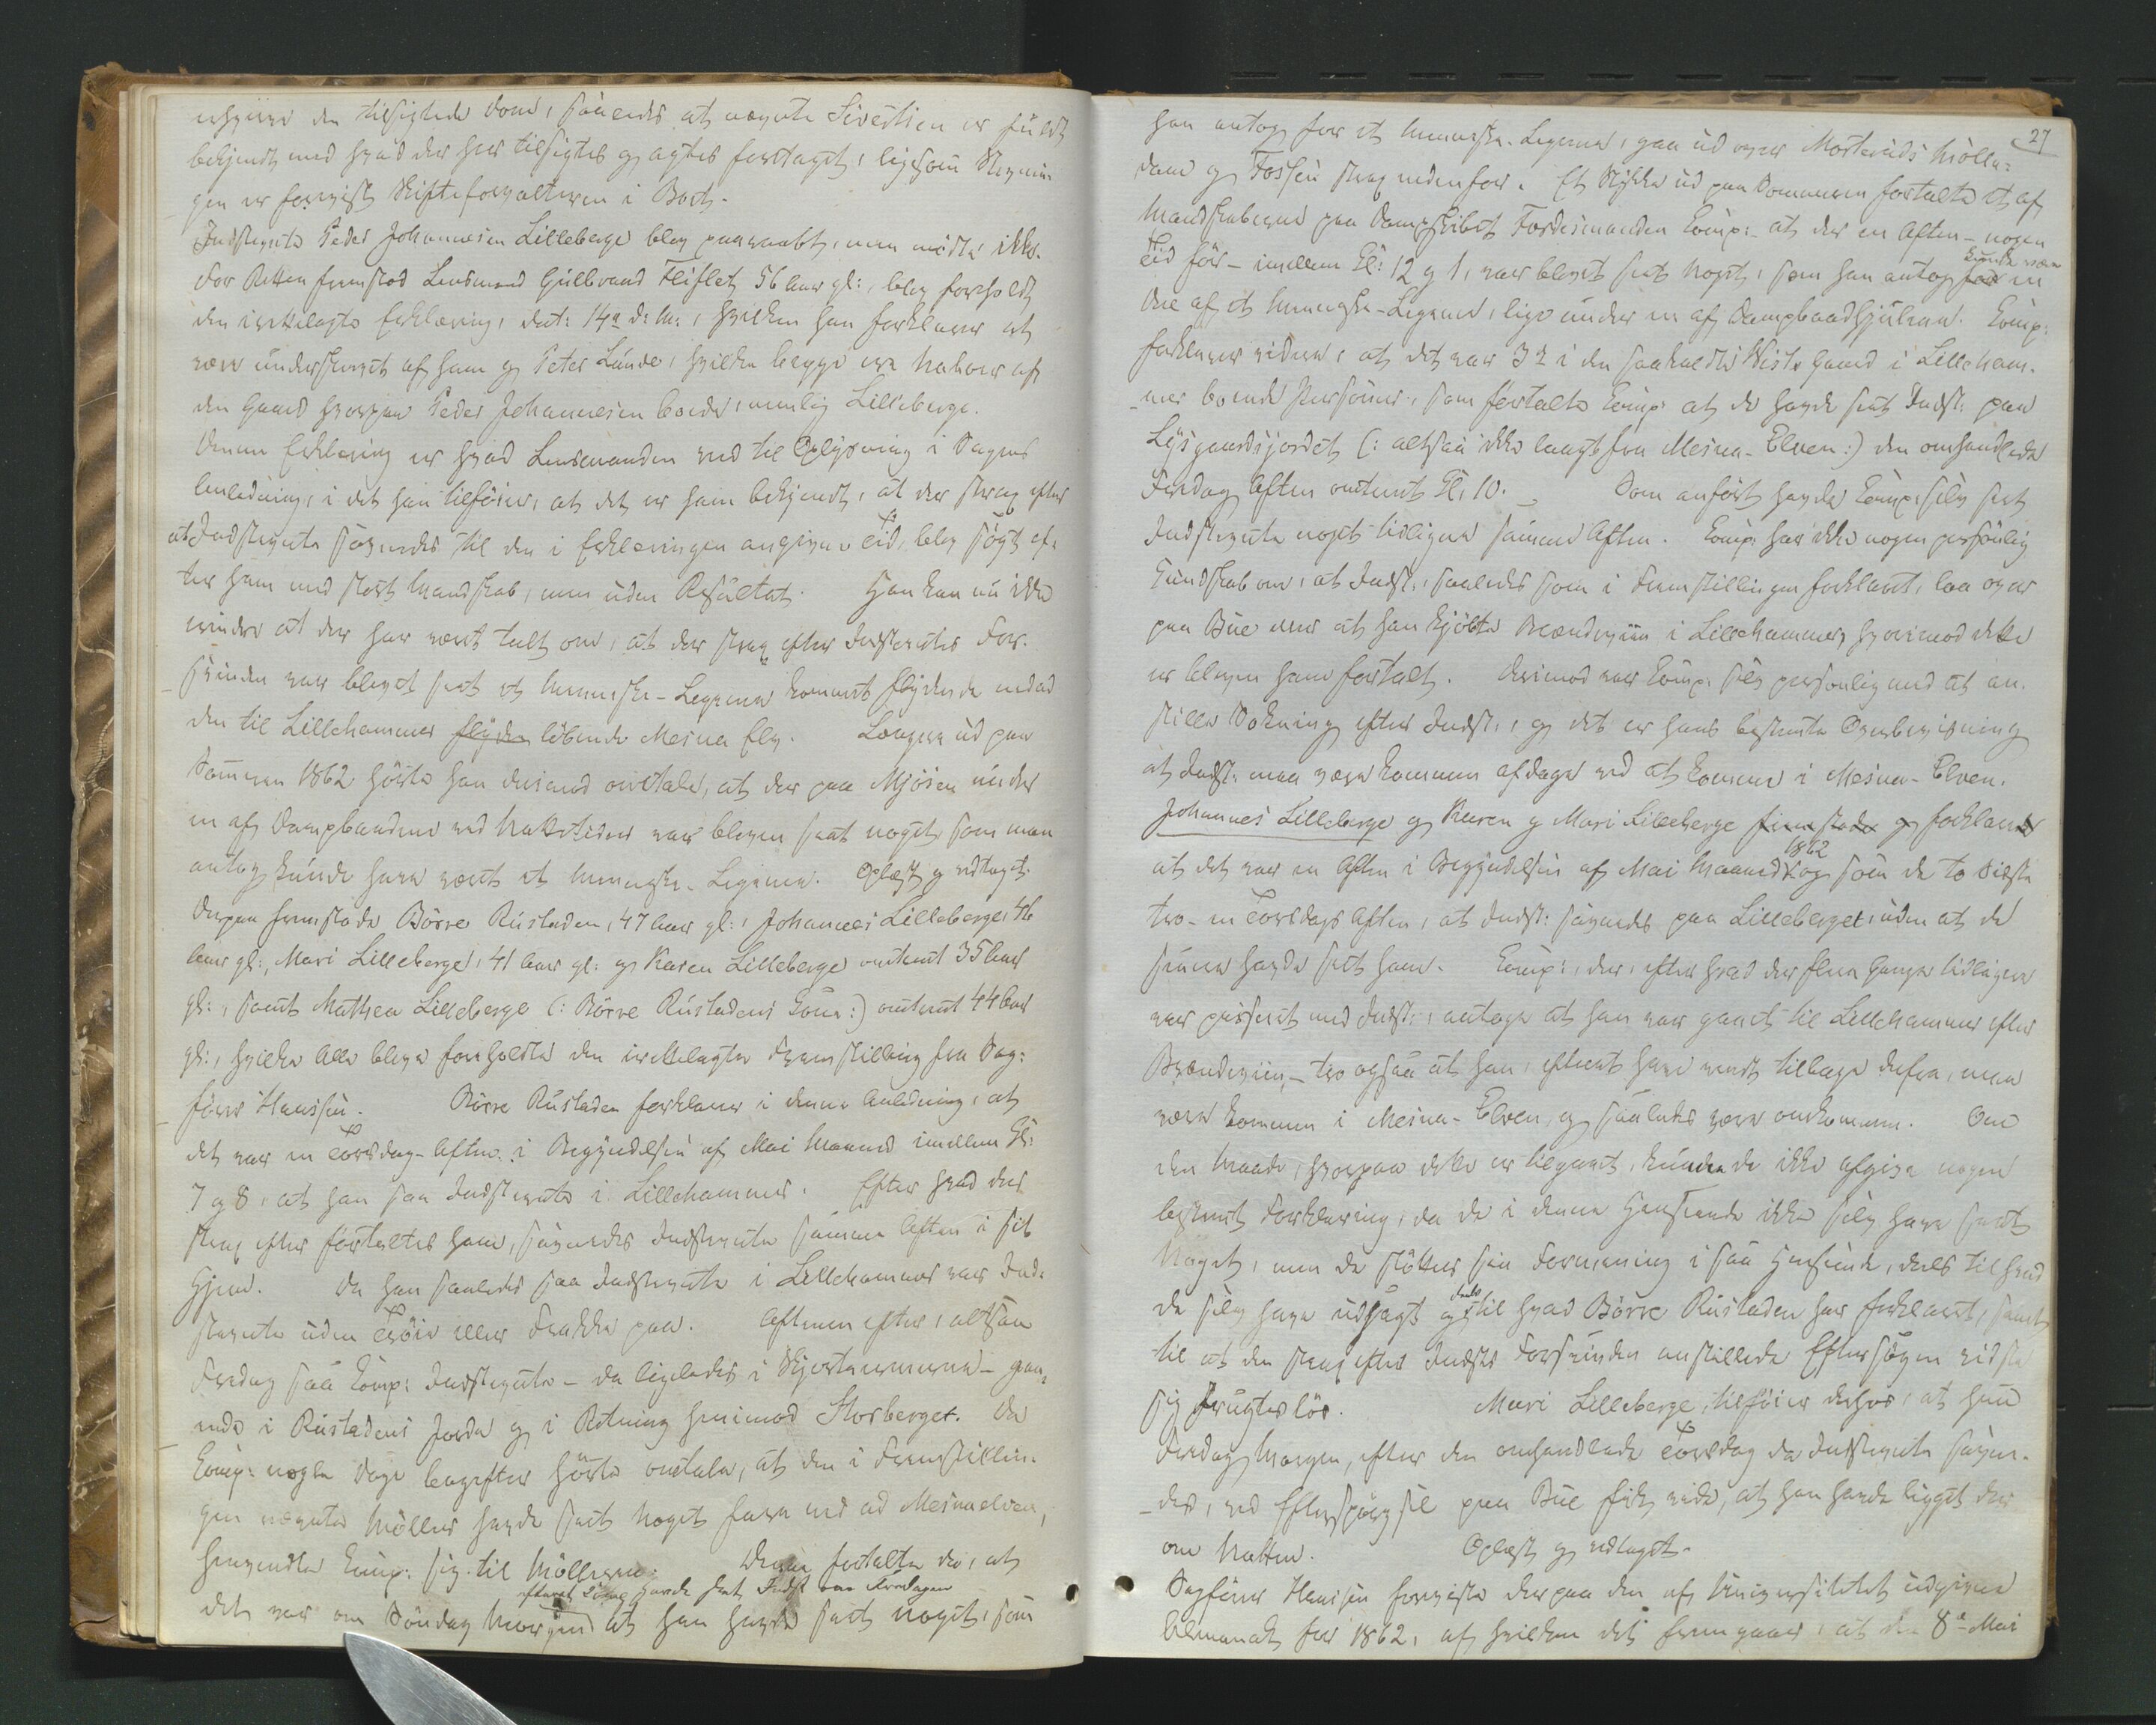 erhverve den tilsigtede Dom, saavelsom at nævnte Sivertsen er fuldt
bekjendt med hvad der her tilsigtes og agtes foretaget, ligesom Stevnin-
gen er forevist Skifteforvalteren i Boet.
Indstevnte Peder Johannesen Lilleberge blev paaraabt, men mødte ikke.
For Retten fremstod Lensmand Gulbrand Fliflet 56 Aar gl:, blev foreholdt
den irettelagte Erklæring, dat: 14de d. M:, hvilken han forklarer at
være underskrevet af ham og Peter Lunde, hvilke begge ere Naboer af
den Gaard hvorpaa Peder Johannesen boede, nemlig Lilleberge.
Denne Erklæring er hvad Lensmanden ved til Oplysning i Sagens
Anledning, i det han tilføier, at det er ham bekjendt, at der strax efter
at Indstevnte savnedes til den i Erklæringen angivne Tid, blev søgt ef-
ter ham med stort Mandskab, men uden Resultat. Han kan nu ikke
erindre at der har været talt om, at der strax efter Indstevntes For-
svinden var blevet seet et Menneske-Legeme kommet flydende nedad
den til Lillehammer flyden løbende Mesna Elv. Længere ud paa
Sommeren 1862 hørte han derimod omtale, at der paa Mjøsen under
en af Dampbaadene ved Nattetider var bleven seet noget som man
antog kunde have været et Menneske-Legeme. Oplæst og vedtaget.
Derpaa fremstode Børre Rustaden, 47 Aar gl:, Johannes Lilleberge, 46
Aar gl:, Mari Lilleberge, 41 Aar gl: og Karen Lilleberge omtrent 35 Aar
gl:, samt Mathea Lilleberge (: Børre Rustadens Kone :) omtrent 44 Aar
gl:, hvilke Alle bleve foreholdte den irettelagte Fremstilling fra Sag-
fører Hanssen. Børre Rustaden forklarer i denne Anledning, at
det var en Torsdag-Aften i Begyndelsen af Mai Maaned imellem Kl:
7 og 8, at han saa Indstevnte i Lillehammer. Efter hvad der
strax efter fortaltes ham, savnedes Indstevnte samme Aften i sit
Hjem. Da han saaledes saa Indstevnte i Lillehammer var Ind-
stevnte uden Trøie eller Frakke paa. Aftenen efter, altsaa
Fredag saa Comp: Indstevnte - da ligeledes i Skjorteærmerne - gaa-
ende i Rustadens Jorde og i Retning henimod Storberget. Da
Comp: nogle Dage bagefter hørte omtale, at den i Fremstillin-
gen nævnte Møller havde seet Noget fare ned ad Mesnaelven,
henvendte Comp: sig til Mølleren. Denne fortalte da, at
efterat Comp havde seet Indst om Fredagen
det var om Søndag Morgen at han havde seet noget, som
27
han antog for et Menneske-Legeme, gaa ud over Mosteruds Mølle-
dam og Fossen strax nedenfor. Et Stykke ud paa Sommeren fortalte et af
Mandskaberne paa Dampskibet Færdesmanden Comp: at der en Aften - nogen
Tid før - imellem Kl: 12 og 1, var blevet seet Noget, som han antog for kunde være en
Del af et Menneske-Legeme, lige under en af Dampbaadhjulene. Comp:
forklarer videre, at det var 3de i den saakaldte Wiste Gaard i Lilleham-
mer boende Personer, som fortalte Comp: at de havde seet Indst: paa
Lysgaardsjordet (: altsaa ikke langt fra Mesna-Elven :) den omhandlede
Fredag Aften omtrent Kl: 10. Som anført havde Comp: selv seet
Indstevnte noget tidligere samme Aften. Comp: har ikke nogen personlig
Kundskab om, at Indst:, saaledes som i Fremstillingen forklaret, laa over
paa Bue eller at han kjøbte Brændeviin i Lillehammer, hvorimod dette
er bleven ham fortalt. Derimod var Comp: selv personlig med at an-
stille Søkning efter Indst:, og det er hans bestemte Overbeviisning
at Indst: maa være kommen afdage ved at komme i Mesna-Elven.
Johannes Lilleberge og Karen og Mari Lilleberge fremstode og forklarer
at det var en Aften i Begyndelsen af Mai Maaned 1862 og som de to sidste
tro - en Torsdags Aften, at Indst: savnedes paa Lilleberget, uden at de
senere havde seet ham. Comp:, der, efter hvad der flere Gange tidligere
var passeret med Indst:, antoge at han var gaaet til Lillehammer efter
Brændeviin - tro ogsaa at han, efterat have vendt tilbage derfra, maa
være kommen i Mesna-Elven og saaledes være omkommen. Om
den Maade, hvorpaa dette er tilgaaet, kunde de ikke afgive nogen
bestemt Forklaring, da de i denne Henseende ikke selv have seet
Noget, men de støtter sin Formening i saa Henseende, dels til hvad
de selv have udsagt og dels til hvad Børre Rustaden har forklaret, samt
til at den strax efter Indsts Forsvinden anstillede Eftersøgen viste
sig frugtesløs. Mari Lilleberge tilføier derhos, at hun
Fredag Morgen, efter den omhandlede Torsdag da Indstevnte savne-
des, ved Efterspørgsel paa Bue fik vide, at han havde ligget der
om Natten. Oplæst og vedtaget.
Sagfører Hanssen foreviste derpaa den af Universitetet udgivne
Almanak for 1862, af hvilken det fremgaar, at den 8de Mai